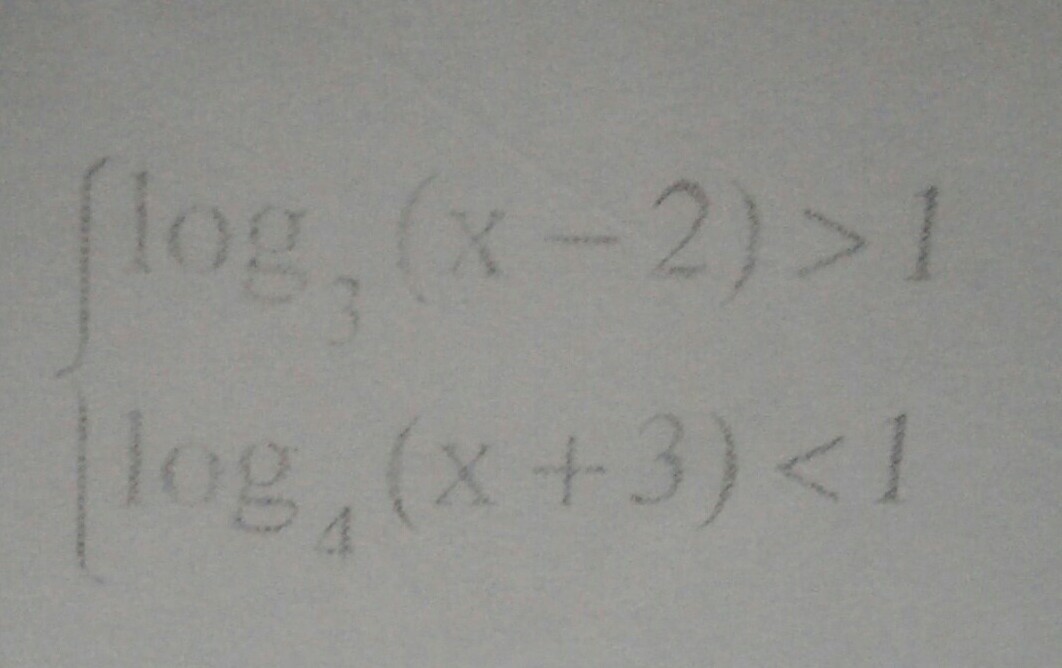 log₃(x − 2) > 1
log₄(x + 3) < 1